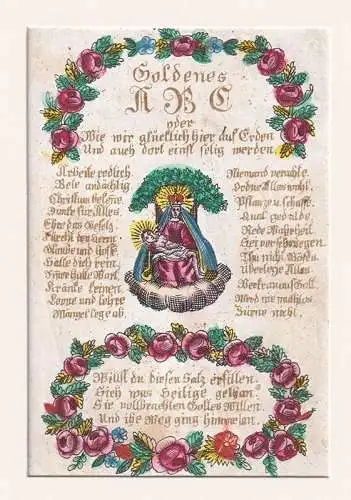 Goldenes
A B C
oder
Wie wir glücklich hier auf Erden
Und auch dort einst selig werden.
Arbeite redlich
Bete andächtig
Christum bekene.
Danke für Alles.
Ehre das Gesetz
Fürcht den Herrn
Glaube und hoff.
Halte dich rein
Jeder Halte Wort.
Kränke keinen
Lerne und lehre
Mängel lege ab.
Niemand verachte.
Ordne Alles wohl.
Pflanze u. schaffe.
Qual geduldе.
Rede Wahrheit
verschwiegen
Thu nicht Böses
überlege Alles
Vertrau auf Gott.
Werd nie muthlos
Zürne nicht.
Willst du diesen Satz erfüllen.
Sieh was Heilige gethan.
Sie vollbrachten Gottes Willen.
Und ihr Weg ging himmelan.